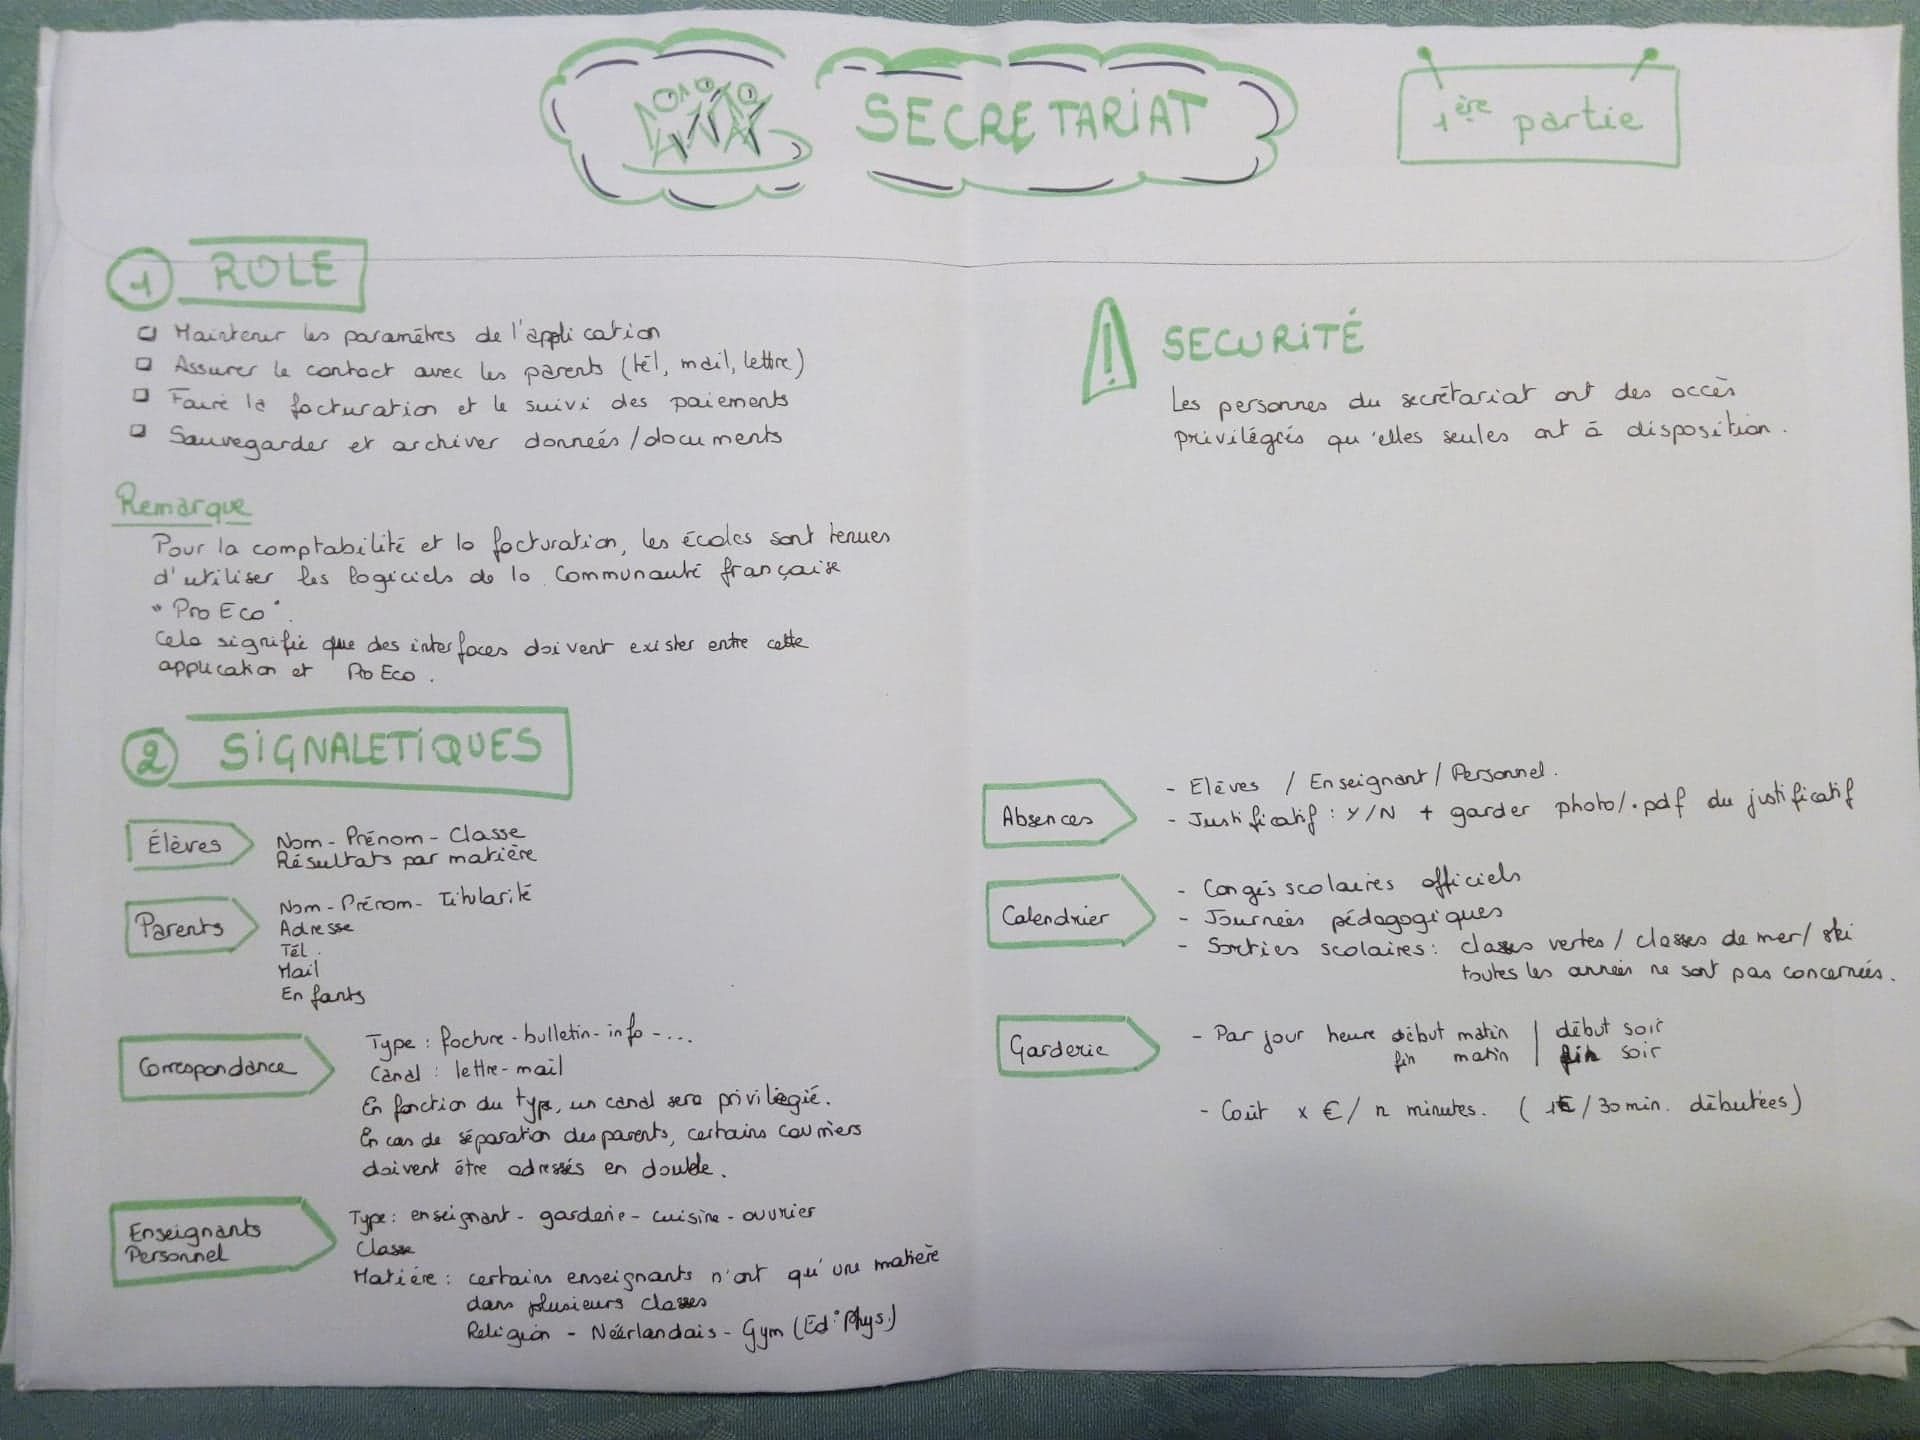 SECRETARIAT
1ère partie
1 ROLE
Maintenir les paramètres de l'application
Assurer le contact avec les parents (tél, mail, lettre)
Faire la facturation et le suivi des paiements
Sauvegarder et archiver données/documents
Remarque
Pour la comptabilité et la facturation, les écoles sont tenues
d'utiliser les logiciels de la Communauté française
"Pro Eco".
Cela signifie que des interfaces doivent exister entre cette
application et Pro Eco.
! SECURITÉ
Les personnes du secrétariat ont des accès
privilégiés qu'elles seules ont à disposition.
2 SIGNALETIQUES
Élèves
Nom - Prénom - Classe
Résultats par matière
Parents
Nom - Prénom - Titularité
Adresse
Tél.
Mail
Enfants
Correspondance
Type : facture - bulletin - info - ...
Canal : lettre - mail
En fonction du type, un canal sera privilégié.
En cas de séparation des parents, certains courriers
doivent être adressés en double.
Enseignants
Personnel
Type : enseignant - garderie - cuisine - ouvrier
Classe
Matière : certains enseignants n'ont qu'une matière
dans plusieurs classes
Religion - Néérlandais - Gym (Ed° Phys.)
Absences
- Elèves / Enseignant / Personnel.
- Justificatif : Y/N + garder photo/.pdf du justificatif
Calendrier
- Congés scolaires officiels
- Journées pédagogiques
- Sorties scolaires : classes vertes / classes de mer / ski
toutes les années ne sont pas concernées.
Garderie
- Par jour heure début matin | début soir
fin matin | fin soir
- Coût x € / n minutes. (1€/30 min. débutées)